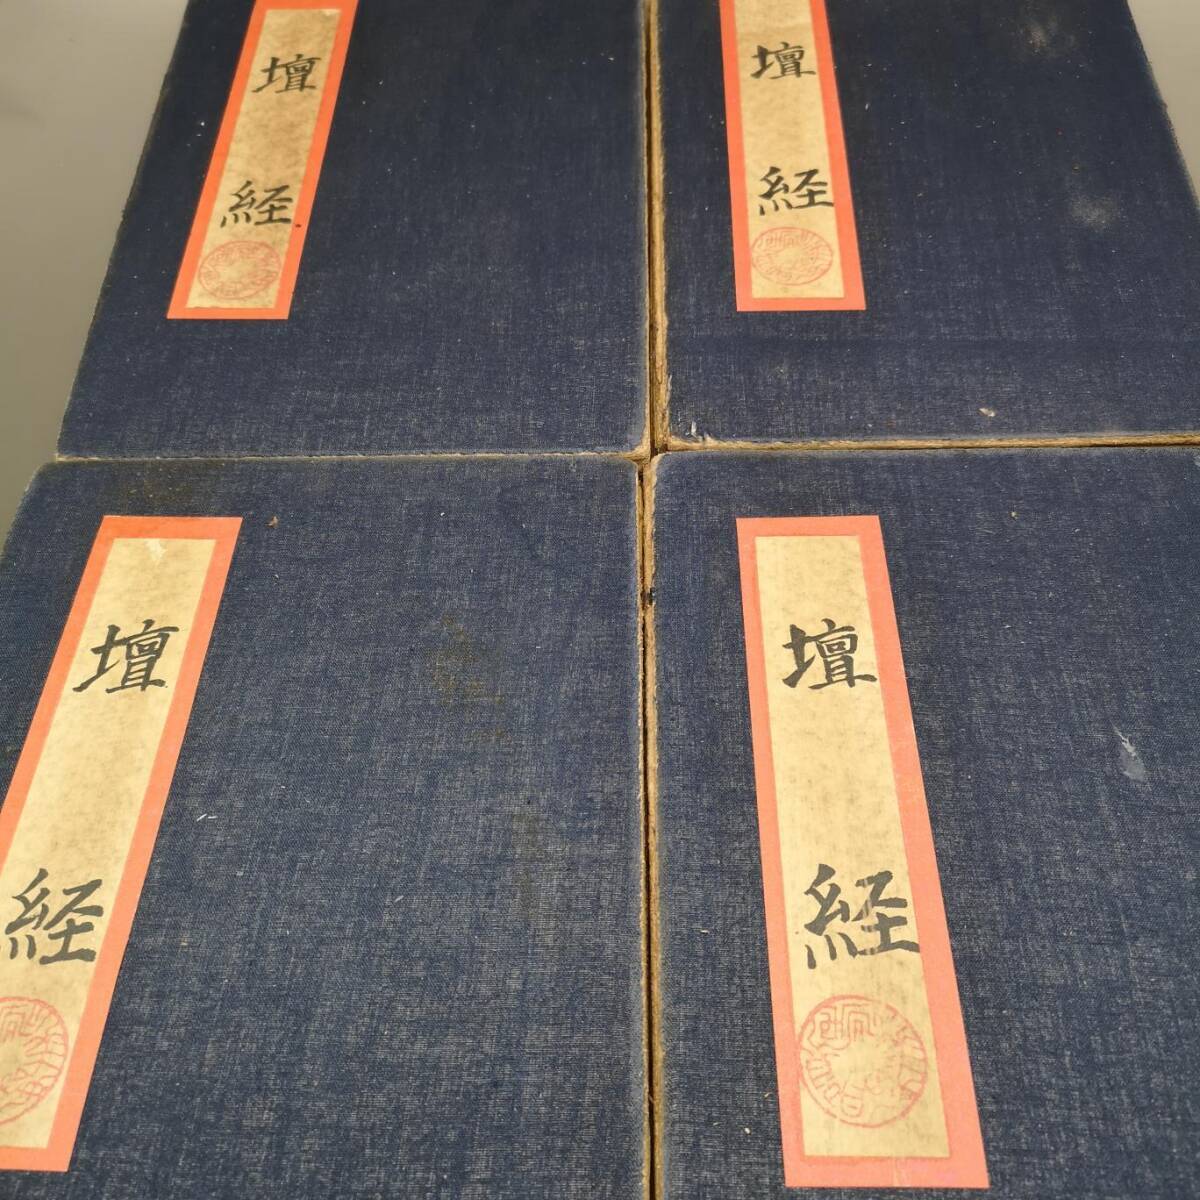 壇経
壇経
壇経
壇経